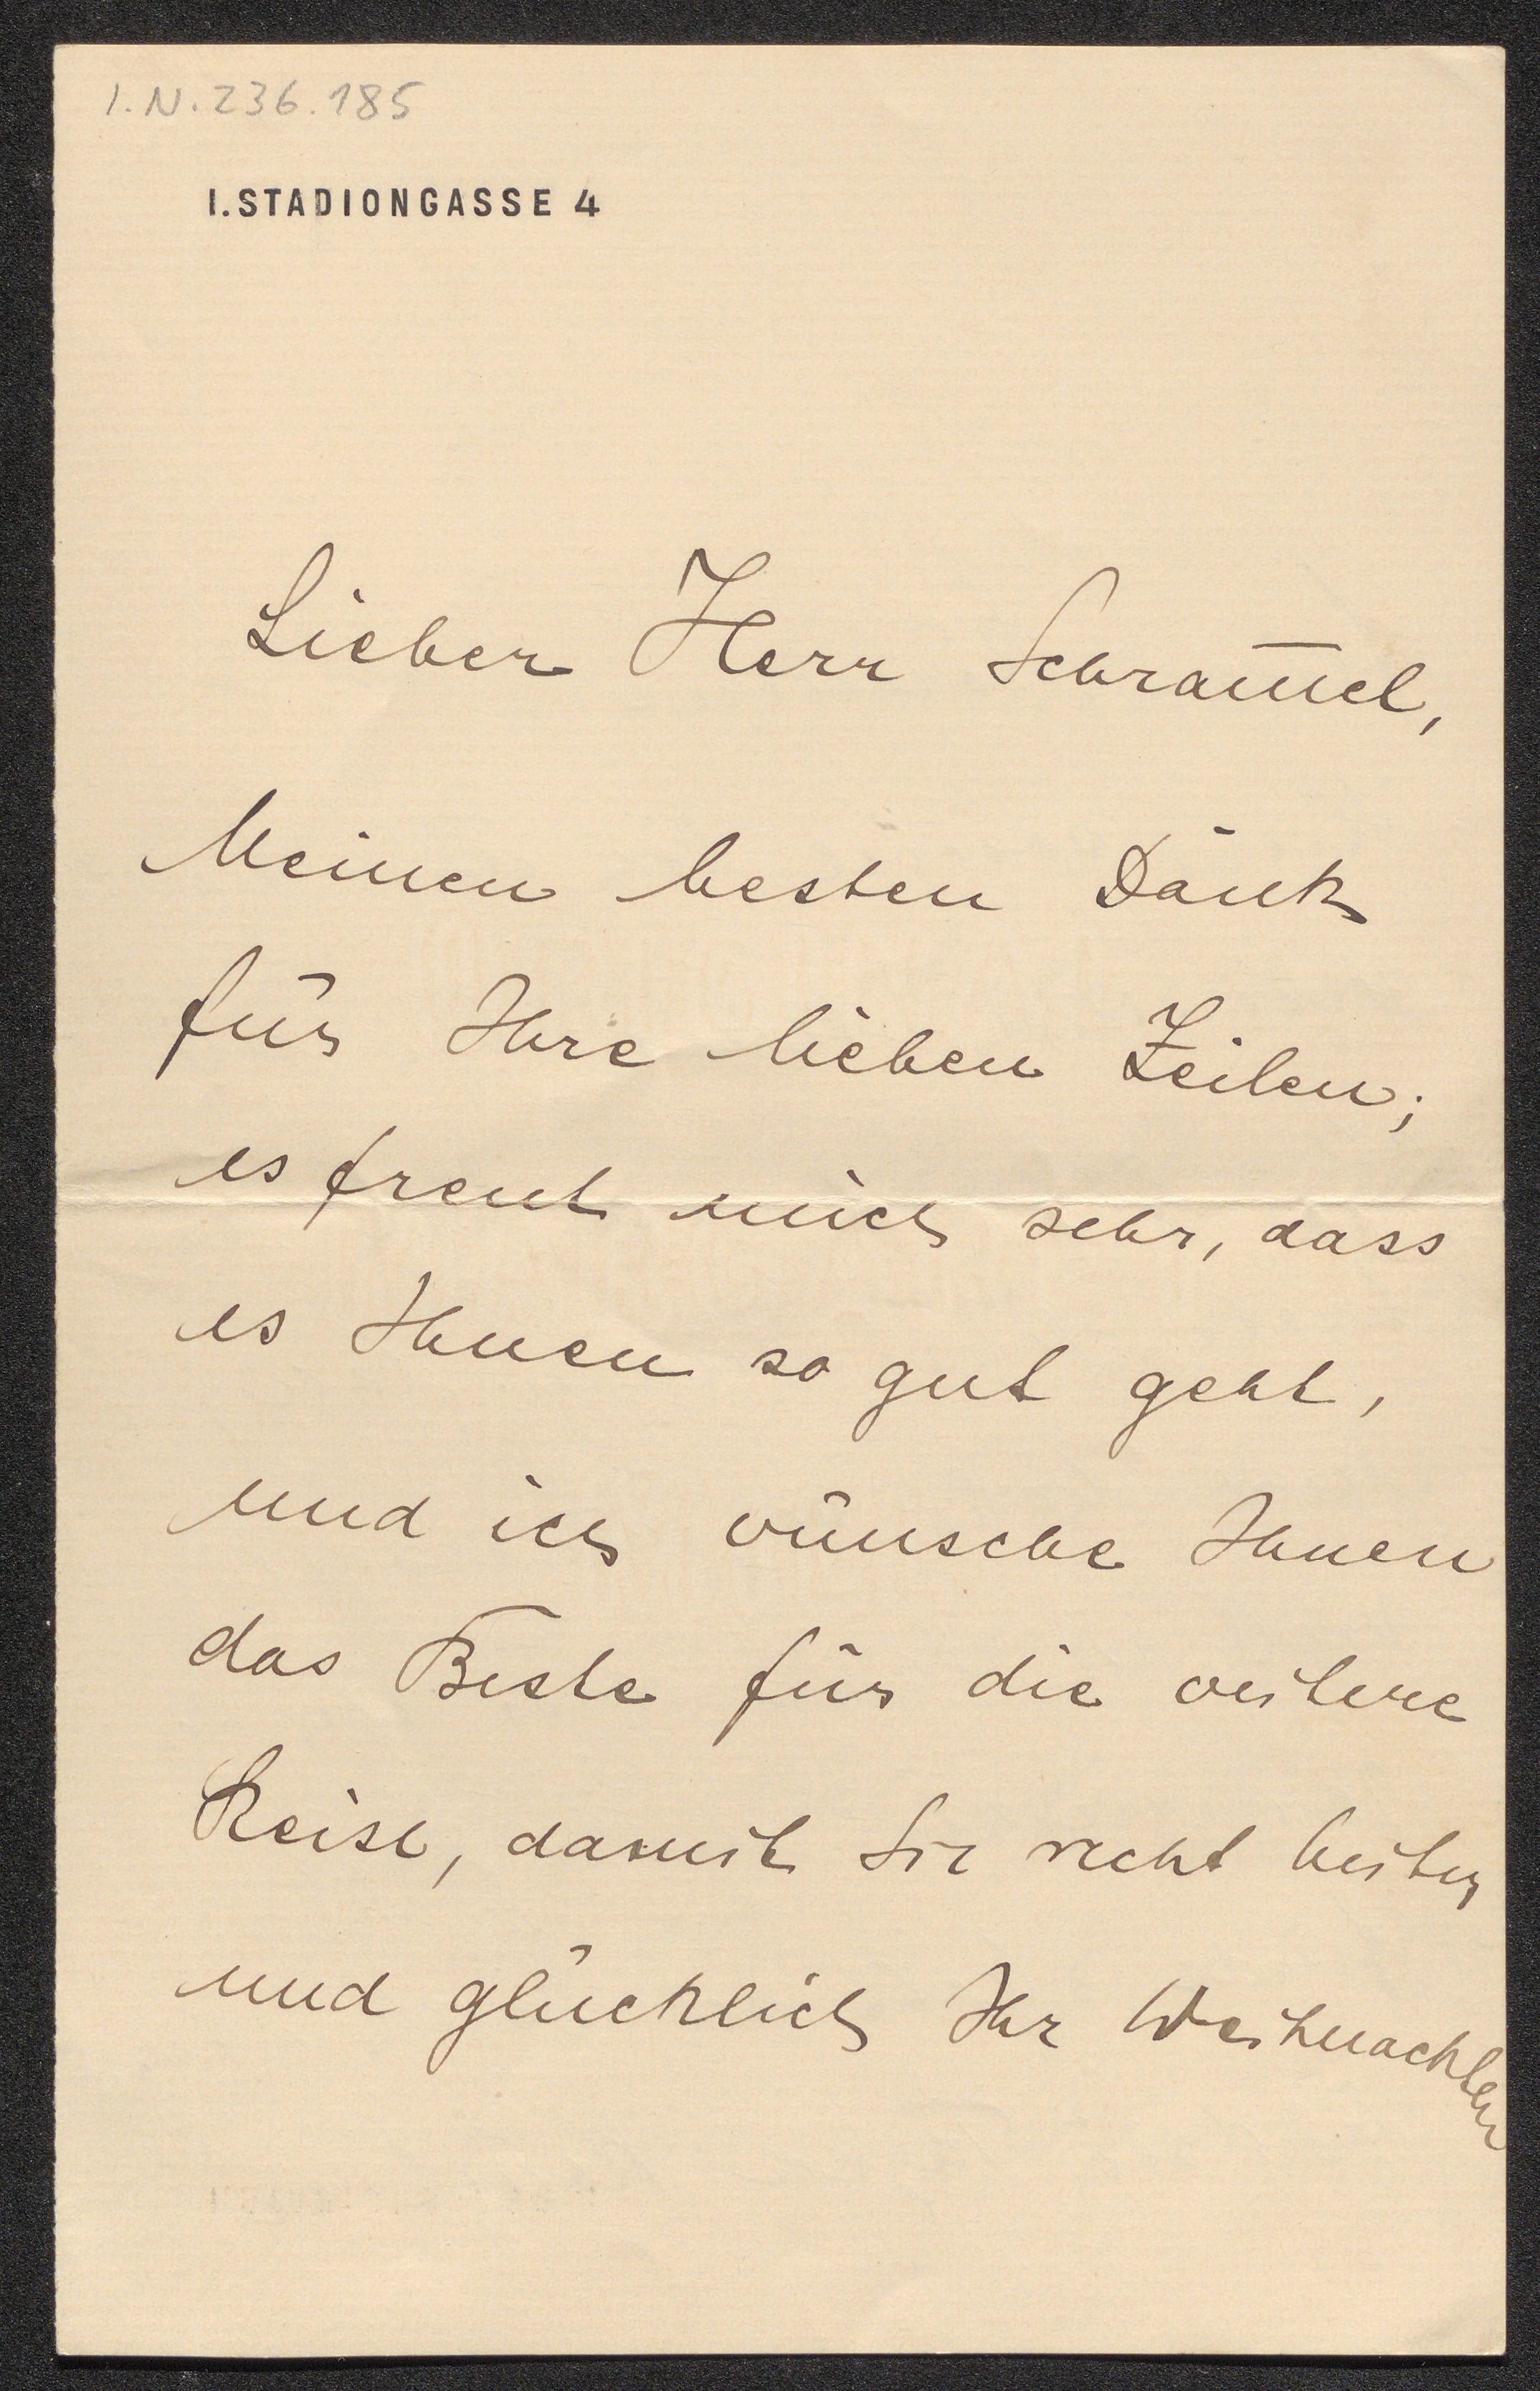 I.N.236.185
I. STADIONGASSE 4
Lieber Herr Schram̅el,
Meinen besten Dank
für Ihre lieben Zeilen;
es freut mich sehr, dass
es Ihnen so gut geht,
und ich wünsche Ihnen
das Beste für die weitere
Reise, damit Sie recht heiter
und glücklich Ihr Weihnachten